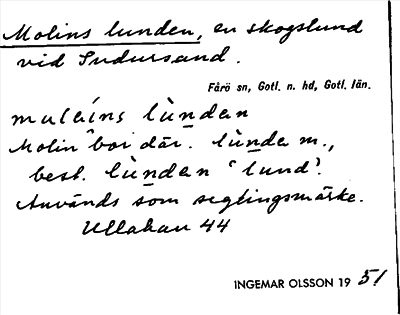 Molins lunden, en skogslund
vid Sudursand.
Fårö sn, Gotl. n. hd, Gotl. län.
muleíns lùndan
Molin bor där. lùnda m.,
best. lùndan 'lund'.
Används som seglingsmärke.
Ullahau 44
INGEMAR OLSSON 1951